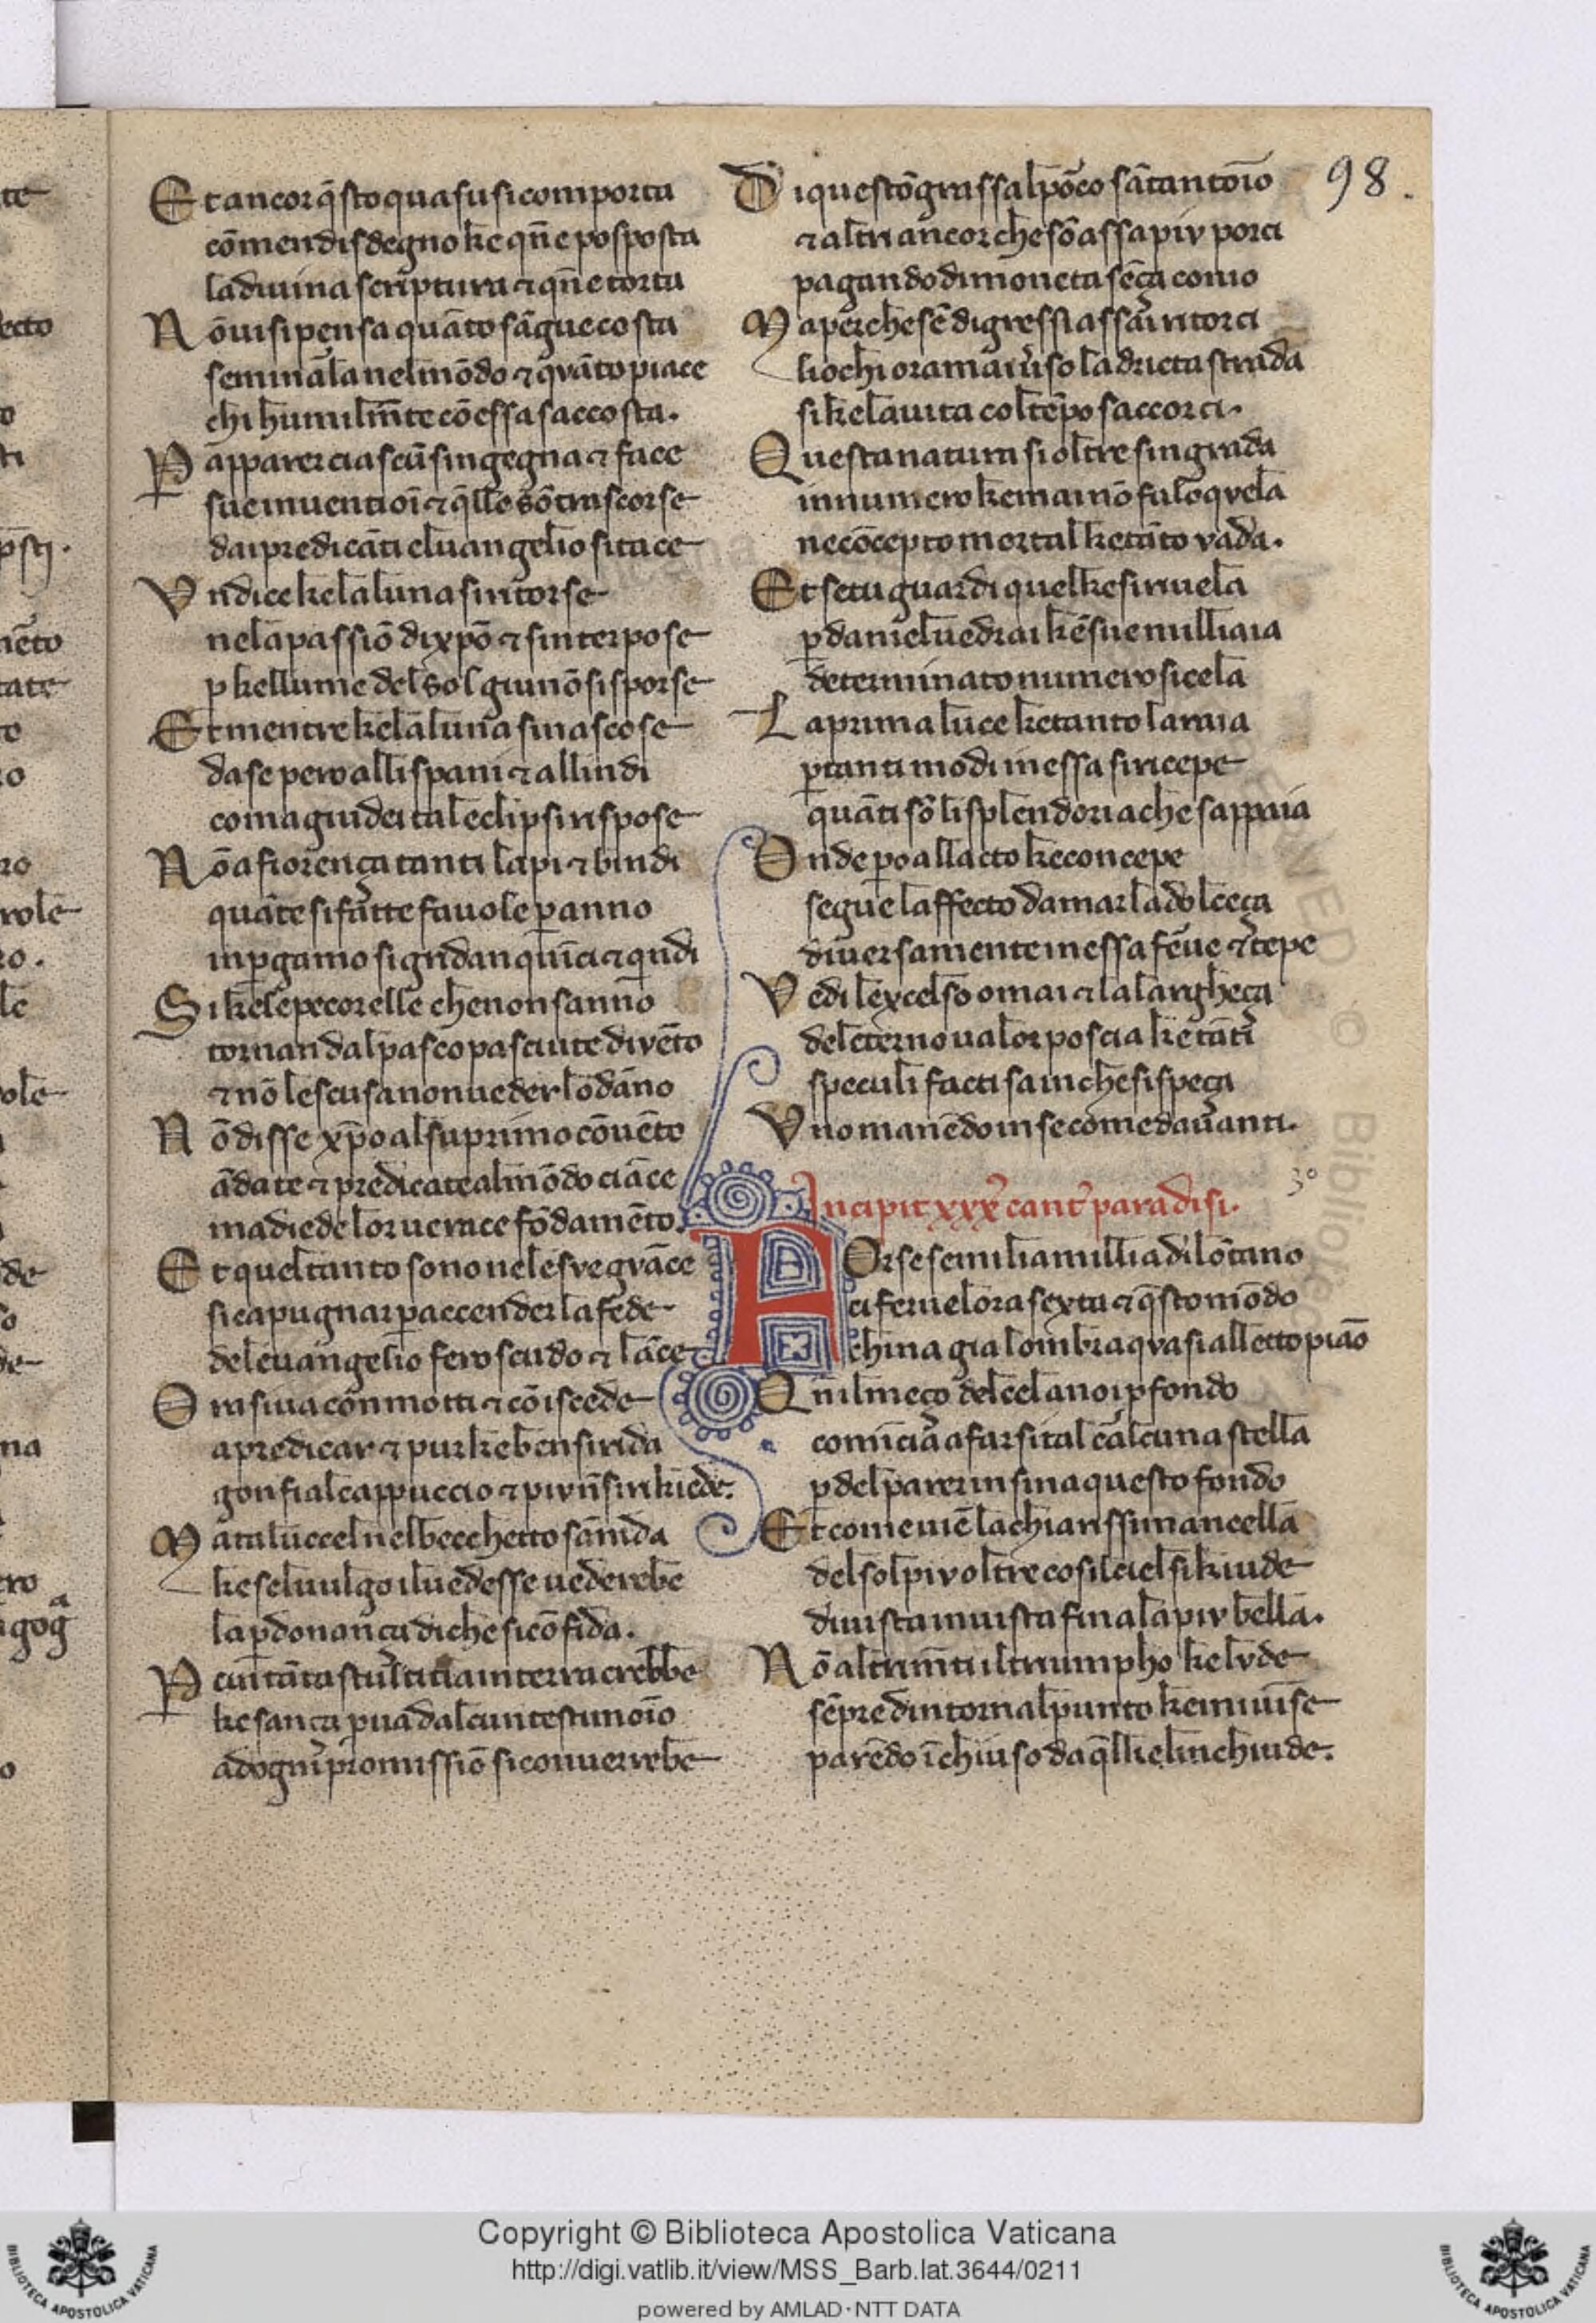 98.
Et ancor q̄sto qua su si comporta
cōmen disdegno ke qn̄ e posposta
la divina scriptura ⁊ qn̄ e torta
Nō vi si pensa quāto sāgue costa
seminarla nel mōdo ⁊ qvāto piace
chi humilmn̄te cō essa s accosta.
Per apparer ciascū s ingegna ⁊ face
sue inventioī ⁊ q̄lle sō trascorse
dai predicāti el vangelio si tace
Un dice ke la luna si ritorse
nela passiō di xp̄o ⁊ s interpose
p kel lume del sol giu nō si sporse
Et mentre ke la luna si nascose
da se pero alli spani ⁊ all indi
com a giudei tal eclipsi rispose
Nō a fiorença tanti lapi ⁊ bindi
quāte si fatte favole p anno
in pgamo si gridan quīci ⁊ qndi
Si ke le pecorelle che non sanno
tornan dal pasco pasciute di vēto
⁊ nō le scusa non veder lo dāno
Nō disse xp̄o al suo primo cōvēto
ādate ⁊ predicate al mōdo ciāce
ma diede lor verace fōdamēto.
Et quel tanto sono nele sve gvāce
si c a pugnar p accender la fede
del evangelio fero scudo ⁊ lāce
Ora si va con motti ⁊ cō iscede
a predicar ⁊ pur ke ben si rida
gonfia l cappuccio ⁊ piv nō si rikiede.
Ma tal uccel nel becchetto s ānida
ke se l vulgo il vedesse vederebe
la pdonança di che si cōfida.
Per cui tāta stultitia in terra crebbe
ke sança pva d alcun testimoīo
ad ogni promissiō si converrebe
Di questo īgrassa l porco sāt antoīo
⁊ altri ancor che sō assa piv porci
pagando di moneta sēça conio
Ma perche sē digressi assai ritorci
li ochi oramai vso la dricta strada
si ke la via col tēpo s accorci.
Questa natura si oltre s ingrada
in numero ke mai nō fu loqvela
ne cōcepto mortal ke tāto vada.
Et se tu guardi quel ke si rivela
p daniel vedrai kē sue milliaia
determinato numero si cela
La prima luce ke tanto la raia
p tanti modi in essa si ricepe
quāti sō li splendori a che s appaia
Onde po all atto ke concepe
segue l affecto d amar la dolceça
diversamente in essa ferve ⁊ tepe
Vedi l excelso omai ⁊ la largheça
del eterno valor poscia ke tāti
speculi facti s a in che si speça
Uno manēdo in se come davanti.
Incipit xxx cant paradisi.
3o
FOrse se milia millia di lōtano
ci ferve l ora sexta ⁊ q̄sto mōdo
china gia l ombra qvasi al lecto piāo
Qn il meço del cel a noi pfondo
comīcia a farsi tal c alcuna stella
pde l parer insin a questo fondo
Et come vie la chiarissim ancella
del sol piv oltre cosi l ciel si kiude
di vista in vista fin ala piv bella.
Nō altrimn̄ti il triumpho ke lvde
sēpre dintorn al punto ke mi vīse
parēdo īchiuso da q̄l k el inchiude.
Copyright © Biblioteca Apostolica Vaticana
http://digi.vatlib.it/view/MSS_Barb.lat.3644/0211
powered by AMLAD·NTT DATA
BIBLIOTECA APOSTOLICA VATICANA
BIBLIOTECA APOSTOLICA VATICANA